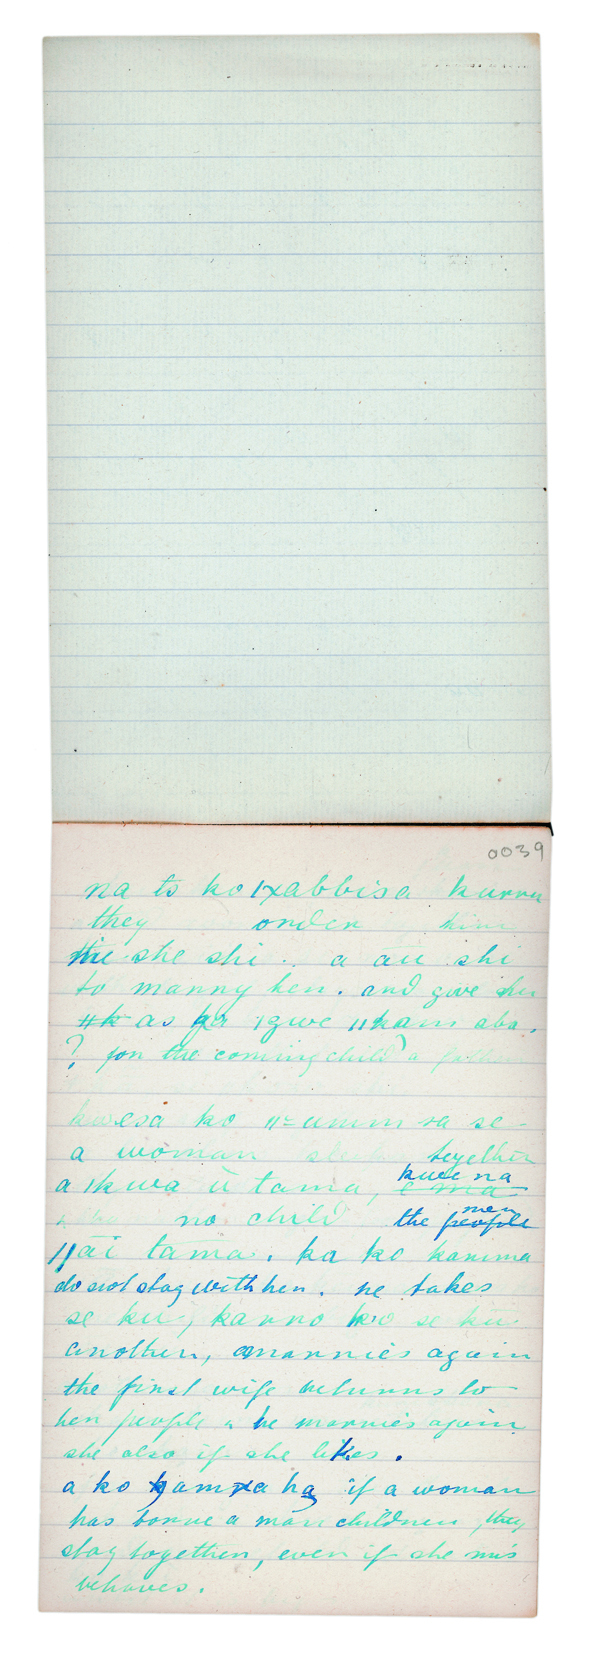 0039
na to ko ǀxabbisa kurru
they order him
she shi .. a āu shi
to marry her. and give her
as ǀgwe ǁham aba.
? for the coming child? a
kwesa ko ǁ=umm sa se-
a woman together
a ǀkwa ū tama, kwe na
no child the people men
ǁāi tama. ka ko kamma
do not stay with her. he takes
se ku, kanno ko se ku
another, marries again
the first wife returns to
her people & he marries again
she also if she likes.
a ko ha if a woman
has borne a man children, they
stay together, even if she mis
behaves.